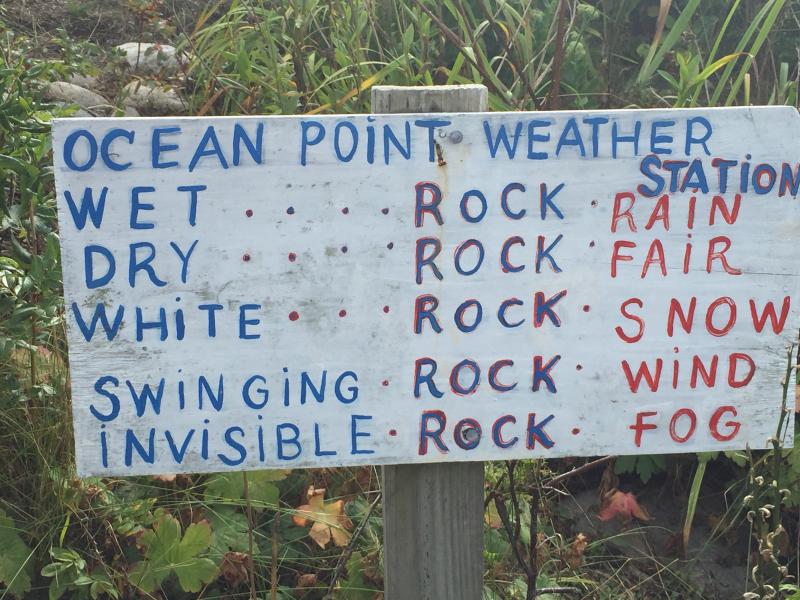 OCEAN POiNT WEATHER
STATiON
WET . . . . ROCK . RAiN
DRY . . . . ROCK . FAiR
WHiTE . . . ROCK . SNOW
SWiNGiNG . ROCK . WiND
iNViSiBLE . ROCK . FOG